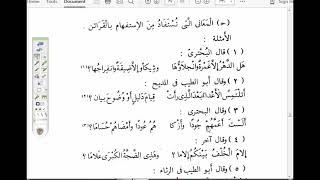 Document
(ح) الْمَعَانِى الَّتِى تُسْتَفَادُ مِنَ الِاسْتِفْهَامِ بِالْقَرَائِنِ .
الأمثلة :
( ١ ) قال البُحْتُرِىّ :
هَلِ الدَّهْرُ إِلَّا غَمْرَةٌ وَانْجِلَاؤُهَا وَشِيكًا وَإِلَّا ضِيقَةٌ وَانْفِرَاجُهَا ؟ (١)
( ٢ ) وقال أبو الطيب فى المديح :
أَتَلْتَمِسُ الْأَعْدَاءُ بَعْدَ الَّذِى رَأَتْ قِيَامَ دَلِيلٍ أَوْ وُضُوحَ بَيَانِ ؟ (٢)
( ٣ ) وقال البحترى :
أَلَسْتَ أَعَمَّهُمْ جُودًا وَأَزْكَا هُمُ عُودًا وَأَمْضَاهُمْ حُسَامًا ؟ (٣)
( ٤ ) وقال آخر :
إِلَامَ الْخُلْفُ بَيْنَكُمُ إِلَامَا ؟ وَهٰذِى الضَّجَّةُ الْكُبْرَى عَلَامَا ؟
( ٥ ) وقال أبو الطيب فى الرثاء :